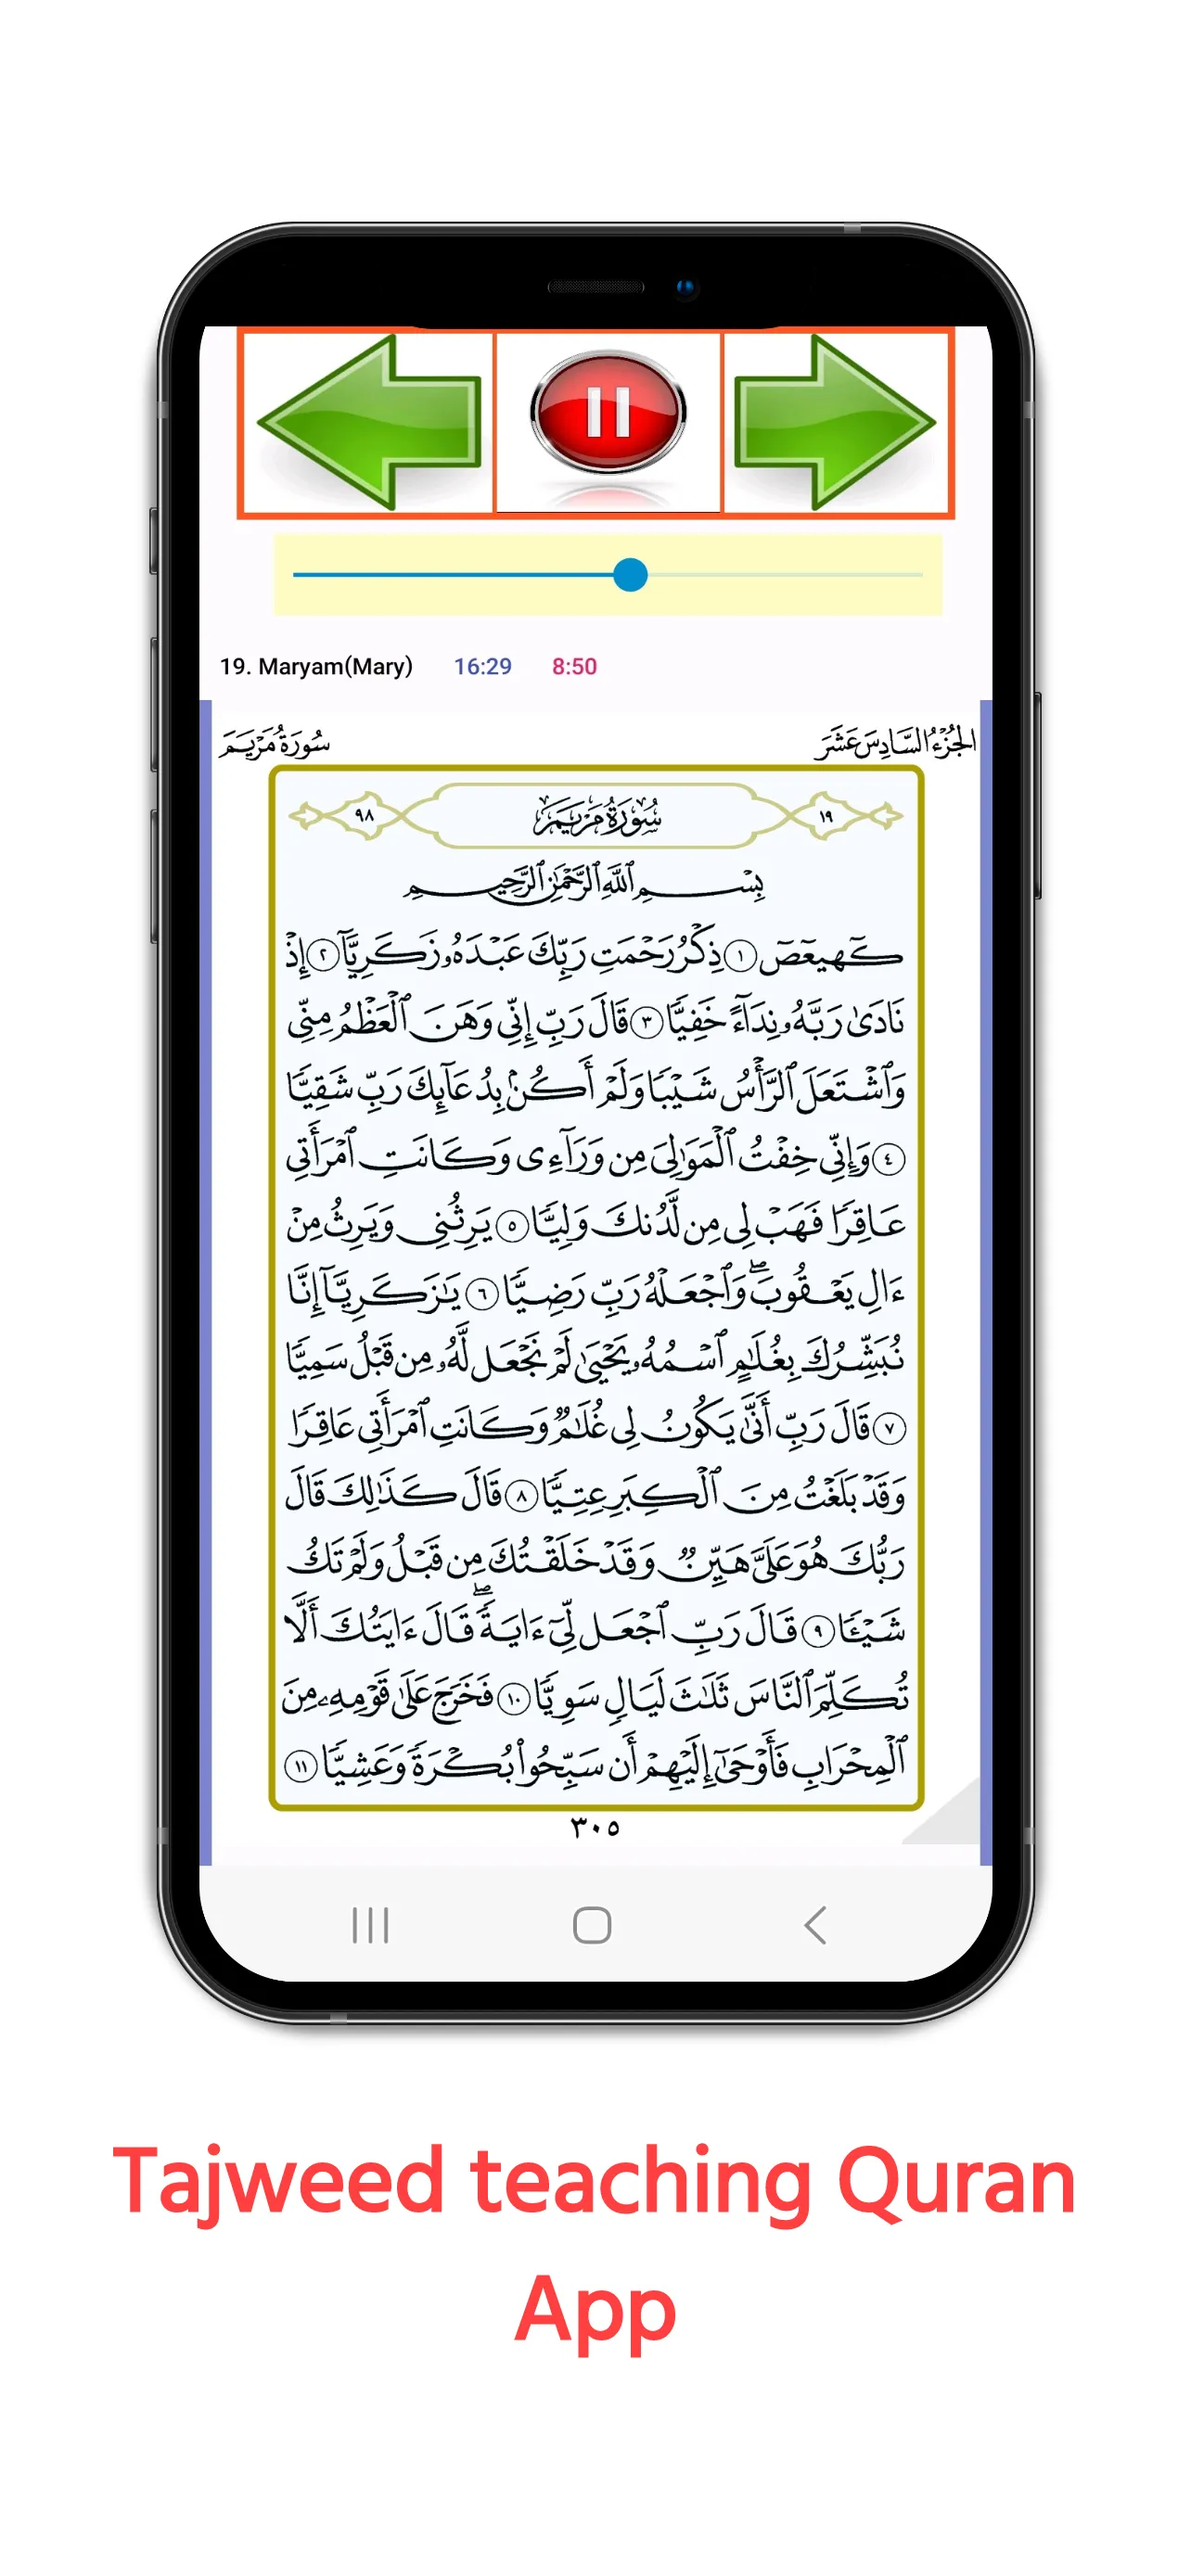 19. Maryam(Mary) 16:29 8:50
سُورَةُ مَرْيَمَ
الجُزْءُ السَّادِسَ عَشَرَ
١٩ سُورَةُ مَرْيَمَ ٩٨
بِسْمِ ٱللَّهِ ٱلرَّحْمَٰنِ ٱلرَّحِيمِ
كٓهيعٓصٓ ١ ذِكْرُ رَحْمَتِ رَبِّكَ عَبْدَهُۥ زَكَرِيَّآ ٢ إِذْ
نَادَىٰ رَبَّهُۥ نِدَآءً خَفِيًّا ٣ قَالَ رَبِّ إِنِّي وَهَنَ ٱلْعَظْمُ مِنِّي
وَٱشْتَعَلَ ٱلرَّأْسُ شَيْبًا وَلَمْ أَكُنۢ بِدُعَآئِكَ رَبِّ شَقِيًّا
٤ وَإِنِّي خِفْتُ ٱلْمَوَٰلِيَ مِن وَرَآءِى وَكَانَتِ ٱمْرَأَتِي
عَاقِرًا فَهَبْ لِي مِن لَّدُنكَ وَلِيًّا ٥ يَرِثُنِي وَيَرِثُ مِنْ
ءَالِ يَعْقُوبَۖ وَٱجْعَلْهُ رَبِّ رَضِيًّا ٦ يَٰزَكَرِيَّآ إِنَّا
نُبَشِّرُكَ بِغُلَٰمٍ ٱسْمُهُۥ يَحْيَىٰ لَمْ نَجْعَل لَّهُۥ مِن قَبْلُ سَمِيًّا
٧ قَالَ رَبِّ أَنَّىٰ يَكُونُ لِي غُلَٰمٌ وَكَانَتِ ٱمْرَأَتِي عَاقِرًا
وَقَدْ بَلَغْتُ مِنَ ٱلْكِبَرِ عِتِيًّا ٨ قَالَ كَذَٰلِكَ قَالَ
رَبُّكَ هُوَ عَلَيَّ هَيِّنٌ وَقَدْ خَلَقْتُكَ مِن قَبْلُ وَلَمْ تَكُ
شَيْـًٔا ٩ قَالَ رَبِّ ٱجْعَل لِّيٓ ءَايَةًۖ قَالَ ءَايَتُكَ أَلَّا
تُكَلِّمَ ٱلنَّاسَ ثَلَٰثَ لَيَالٍ سَوِيًّا ١٠ فَخَرَجَ عَلَىٰ قَوْمِهِۦ مِنَ
ٱلْمِحْرَابِ فَأَوْحَىٰٓ إِلَيْهِمْ أَن سَبِّحُوا۟ بُكْرَةً وَعَشِيًّا ١١
٣٠٥
Tajweed teaching Quran
App